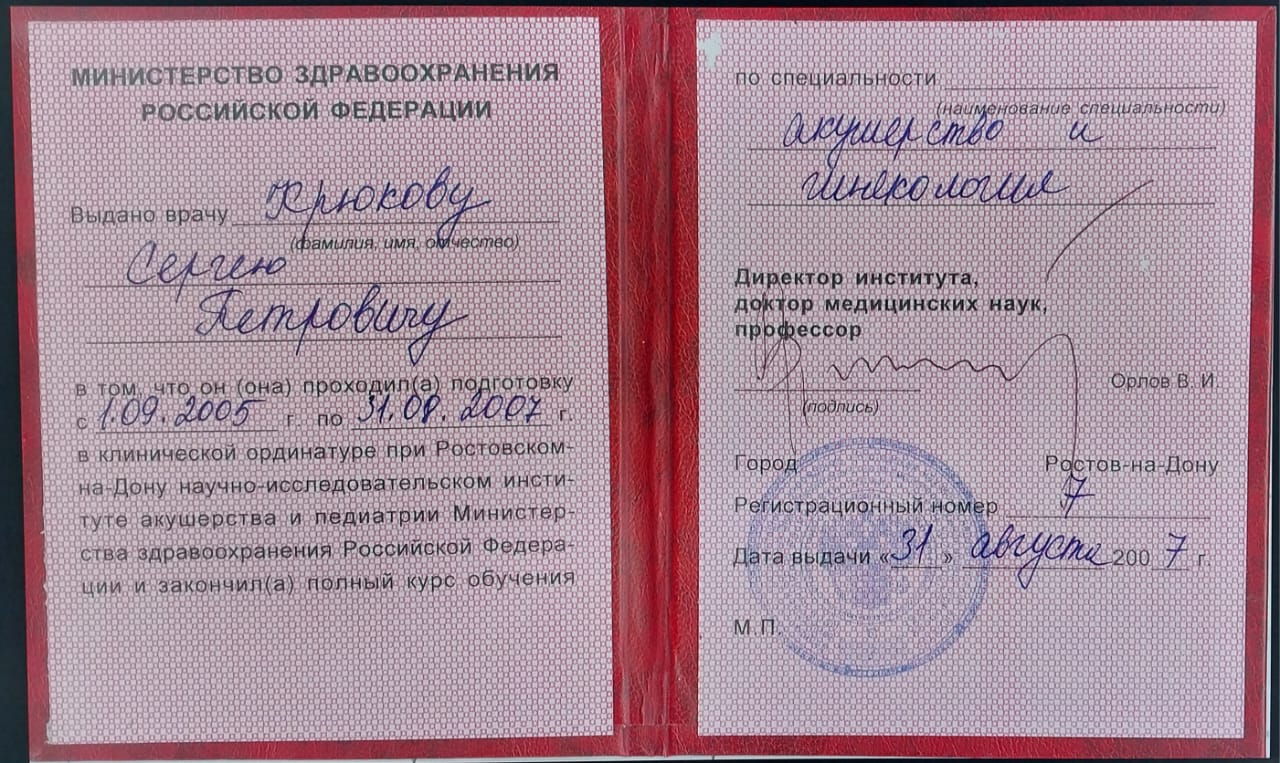 МИНИСТЕРСТВО ЗДРАВООХРАНЕНИЯ
РОССИЙСКОЙ ФЕДЕРАЦИИ
Выдано врачу Крюкову
(фамилия, имя, отчество)
Сергею
Петровичу
в том, что он (она) проходил(а) подготовку
с 1.09.2005 г. по 31.08.2007 г.
в клинической ординатуре при Ростовском-
на-Дону научно-исследовательском инсти-
туте акушерства и педиатрии Министер-
ства здравоохранения Российской Федера-
ции и закончил(а) полный курс обучения
по специальности
(наименование специальности)
акушерство и
гинекология
Директор института,
доктор медицинских наук,
профессор
Орлов В. И.
(подпись)
Город Ростов-на-Дону
Регистрационный номер 7
Дата выдачи «31» августа 2007 г.
М.П.